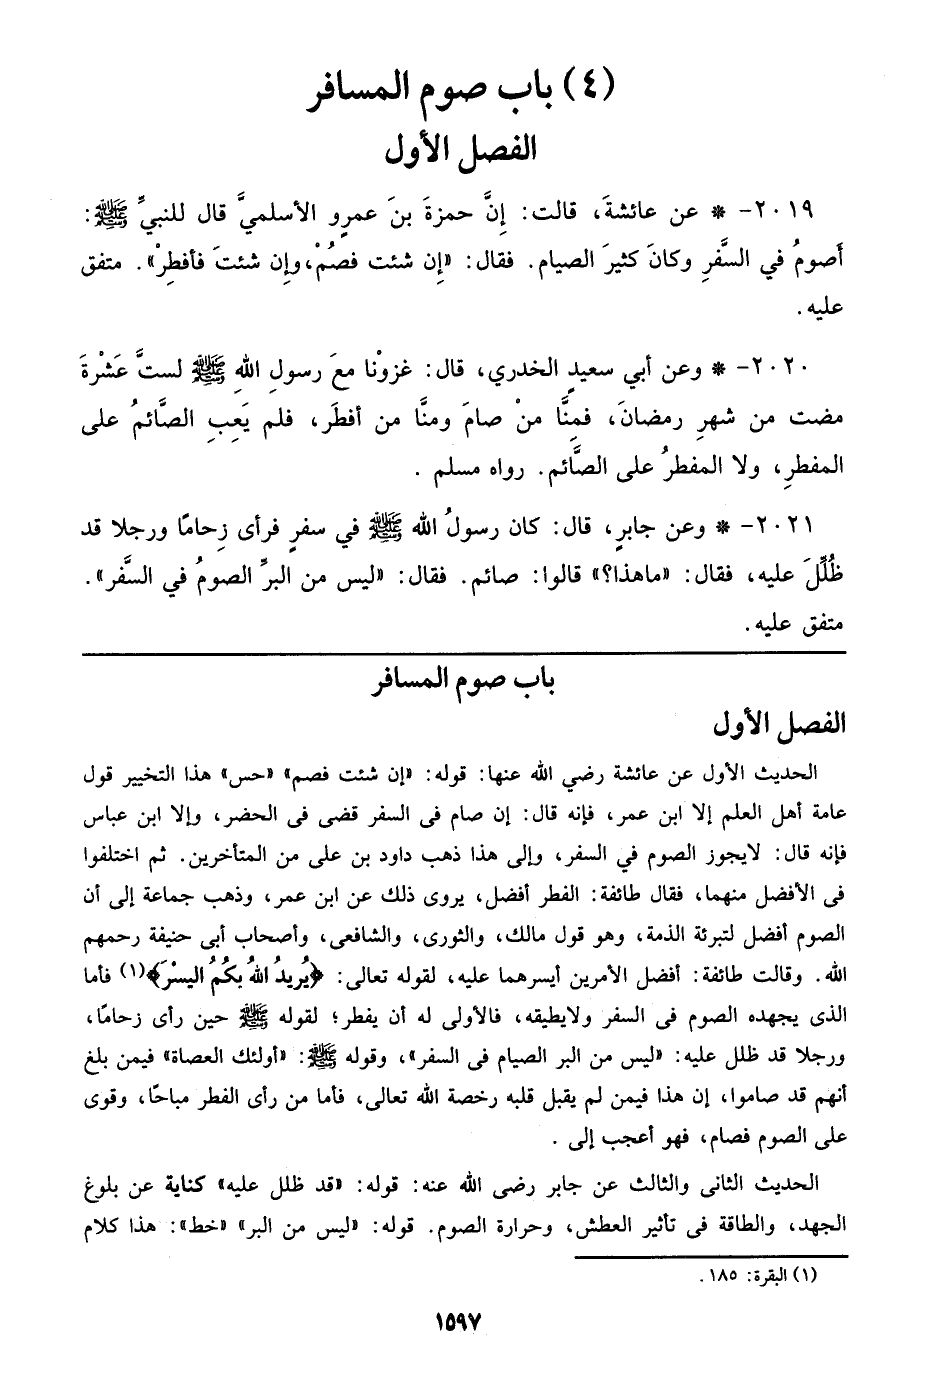 (٤) باب صوم المسافر
الفصل الأول
٢٠١٩- * عن عائشةَ، قالت: إِنَّ حمزةَ بنَ عمرٍو الأسلميَّ قال للنبيِّ ﷺ:
أَصومُ في السَّفرِ وكانَ كثيرَ الصيام. فقال: «إِن شئت فصُمْ، وإِن شئتَ فأفطِرْ». متفق
عليه.
٢٠٢٠- * وعن أبي سعيدٍ الخدري، قال: غزوْنا معَ رسولِ اللهِ ﷺ لستَّ عَشْرةَ
مضت من شهرِ رمضانَ، فمِنَّا منْ صامَ ومنَّا من أفطَر، فلم يَعِبِ الصَّائمُ على
المفطرِ، ولا المفطرُ على الصَّائم. رواه مسلم .
٢٠٢١- * وعن جابرٍ، قال: كان رسولُ الله ﷺ في سفرٍ فرأى زِحامًا ورجلا قد
ظُلِّلَ عليه، فقال: «ماهذا؟» قالوا: صائم. فقال: «ليس من البرِّ الصومُ في السَّفر».
متفق عليه.
باب صوم المسافر
الفصل الأول
الحديث الأول عن عائشة رضي الله عنها: قوله: «إن شئت فصم» «حس» هذا التخيير قول
عامة أهل العلم إلا ابن عمر، فإنه قال: إن صام فى السفر قضى فى الحضر، وإلا ابن عباس
فإنه قال: لايجوز الصوم في السفر، وإلى هذا ذهب داود بن على من المتأخرين. ثم اختلفوا
فى الأفضل منهما، فقال طائفة: الفطر أفضل، يروى ذلك عن ابن عمر، وذهب جماعة إلى أن
الصوم أفضل لتبرئة الذمة، وهو قول مالك، والثورى، والشافعى، وأصحاب أبى حنيفة رحمهم
الله. وقالت طائفة: أفضل الأمرين أيسرهما عليه، لقوله تعالى: ﴿يُريدُ اللهُ بكُمُ اليسْرَ﴾(١) فأما
الذى يجهده الصوم فى السفر ولايطيقه، فالأولى له أن يفطر؛ لقوله ﷺ حين رأى زحامًا،
ورجلا قد ظلل عليه: «ليس من البر الصيام فى السفر»، وقوله ﷺ: «أولئك العصاة» فيمن بلغ
أنهم قد صاموا، إن هذا فيمن لم يقبل قلبه رخصة الله تعالى، فأما من رأى الفطر مباحًا، وقوى
على الصوم فصام، فهو أعجب إلى .
الحديث الثانى والثالث عن جابر رضى الله عنه: قوله: «قد ظلل عليه» كناية عن بلوغ
الجهد، والطاقة فى تأثير العطش، وحرارة الصوم. قوله: «ليس من البر» «خط»: هذا كلام
(١) البقرة: ١٨٥ .
١٥٩٧